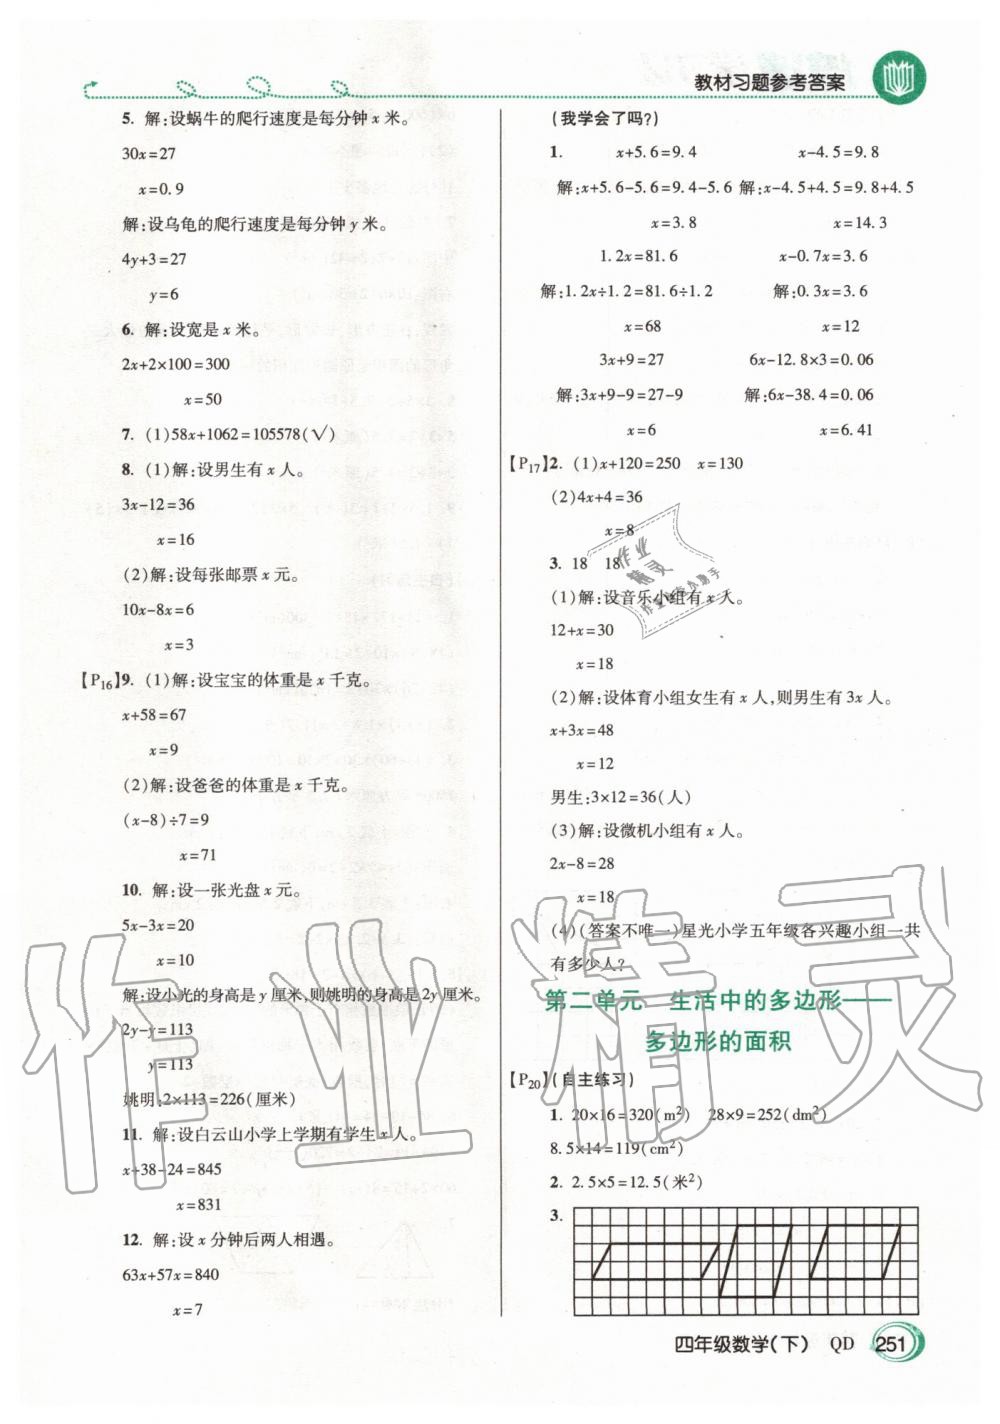 教材习题参考答案
5. 解:设蜗牛的爬行速度是每分钟x米。
30x=27
x=0.9
解:设乌龟的爬行速度是每分钟y米。
4y+3=27
y=6
6. 解:设宽是x米。
2x+2×100=300
x=50
7. (1)58x+1062=105578(√)
8. (1)解:设男生有x人。
3x-12=36
x=16
(2)解:设每张邮票x元。
10x-8x=6
x=3
【P16】9. (1)解:设宝宝的体重是x千克。
x+58=67
x=9
(2)解:设爸爸的体重是x千克。
(x-8)÷7=9
x=71
10. 解:设一张光盘x元。
5x-3x=20
x=10
解:设小光的身高是y厘米,则姚明的身高是2y厘米。
2y-y=113
y=113
姚明:2×113=226(厘米)
11. 解:设白云山小学上学期有学生x人。
x+38-24=845
x=831
12. 解:设x分钟后两人相遇。
63x+57x=840
x=7
(我学会了吗?)
1. x+5.6=9.4 x-4.5=9.8
解:x+5.6-5.6=9.4-5.6 解:x-4.5+4.5=9.8+4.5
x=3.8 x=14.3
1.2x=81.6 x-0.7x=3.6
解:1.2x÷1.2=81.6÷1.2 解:0.3x=3.6
x=68 x=12
3x+9=27 6x-12.8×3=0.06
解:3x+9-9=27-9 解:6x-38.4=0.06
x=6 x=6.41
【P17】2. (1)x+120=250 x=130
(2)4x+4=36
x=8
3. 18 18
(1)解:设音乐小组有x人。
12+x=30
x=18
(2)解:设体育小组女生有x人,则男生有3x人。
x+3x=48
x=12
男生:3×12=36(人)
(3)解:设微机小组有x人。
2x-8=28
x=18
(4)(答案不唯一)星光小学五年级各兴趣小组一共
有多少人?
第二单元 生活中的多边形——
多边形的面积
【P20】(自主练习)
1. 20×16=320(m²) 28×9=252(dm²)
8.5×14=119(cm²)
2. 2.5×5=12.5(米²)
3.
四年级数学(下) QD 251
作业精灵
作业精灵